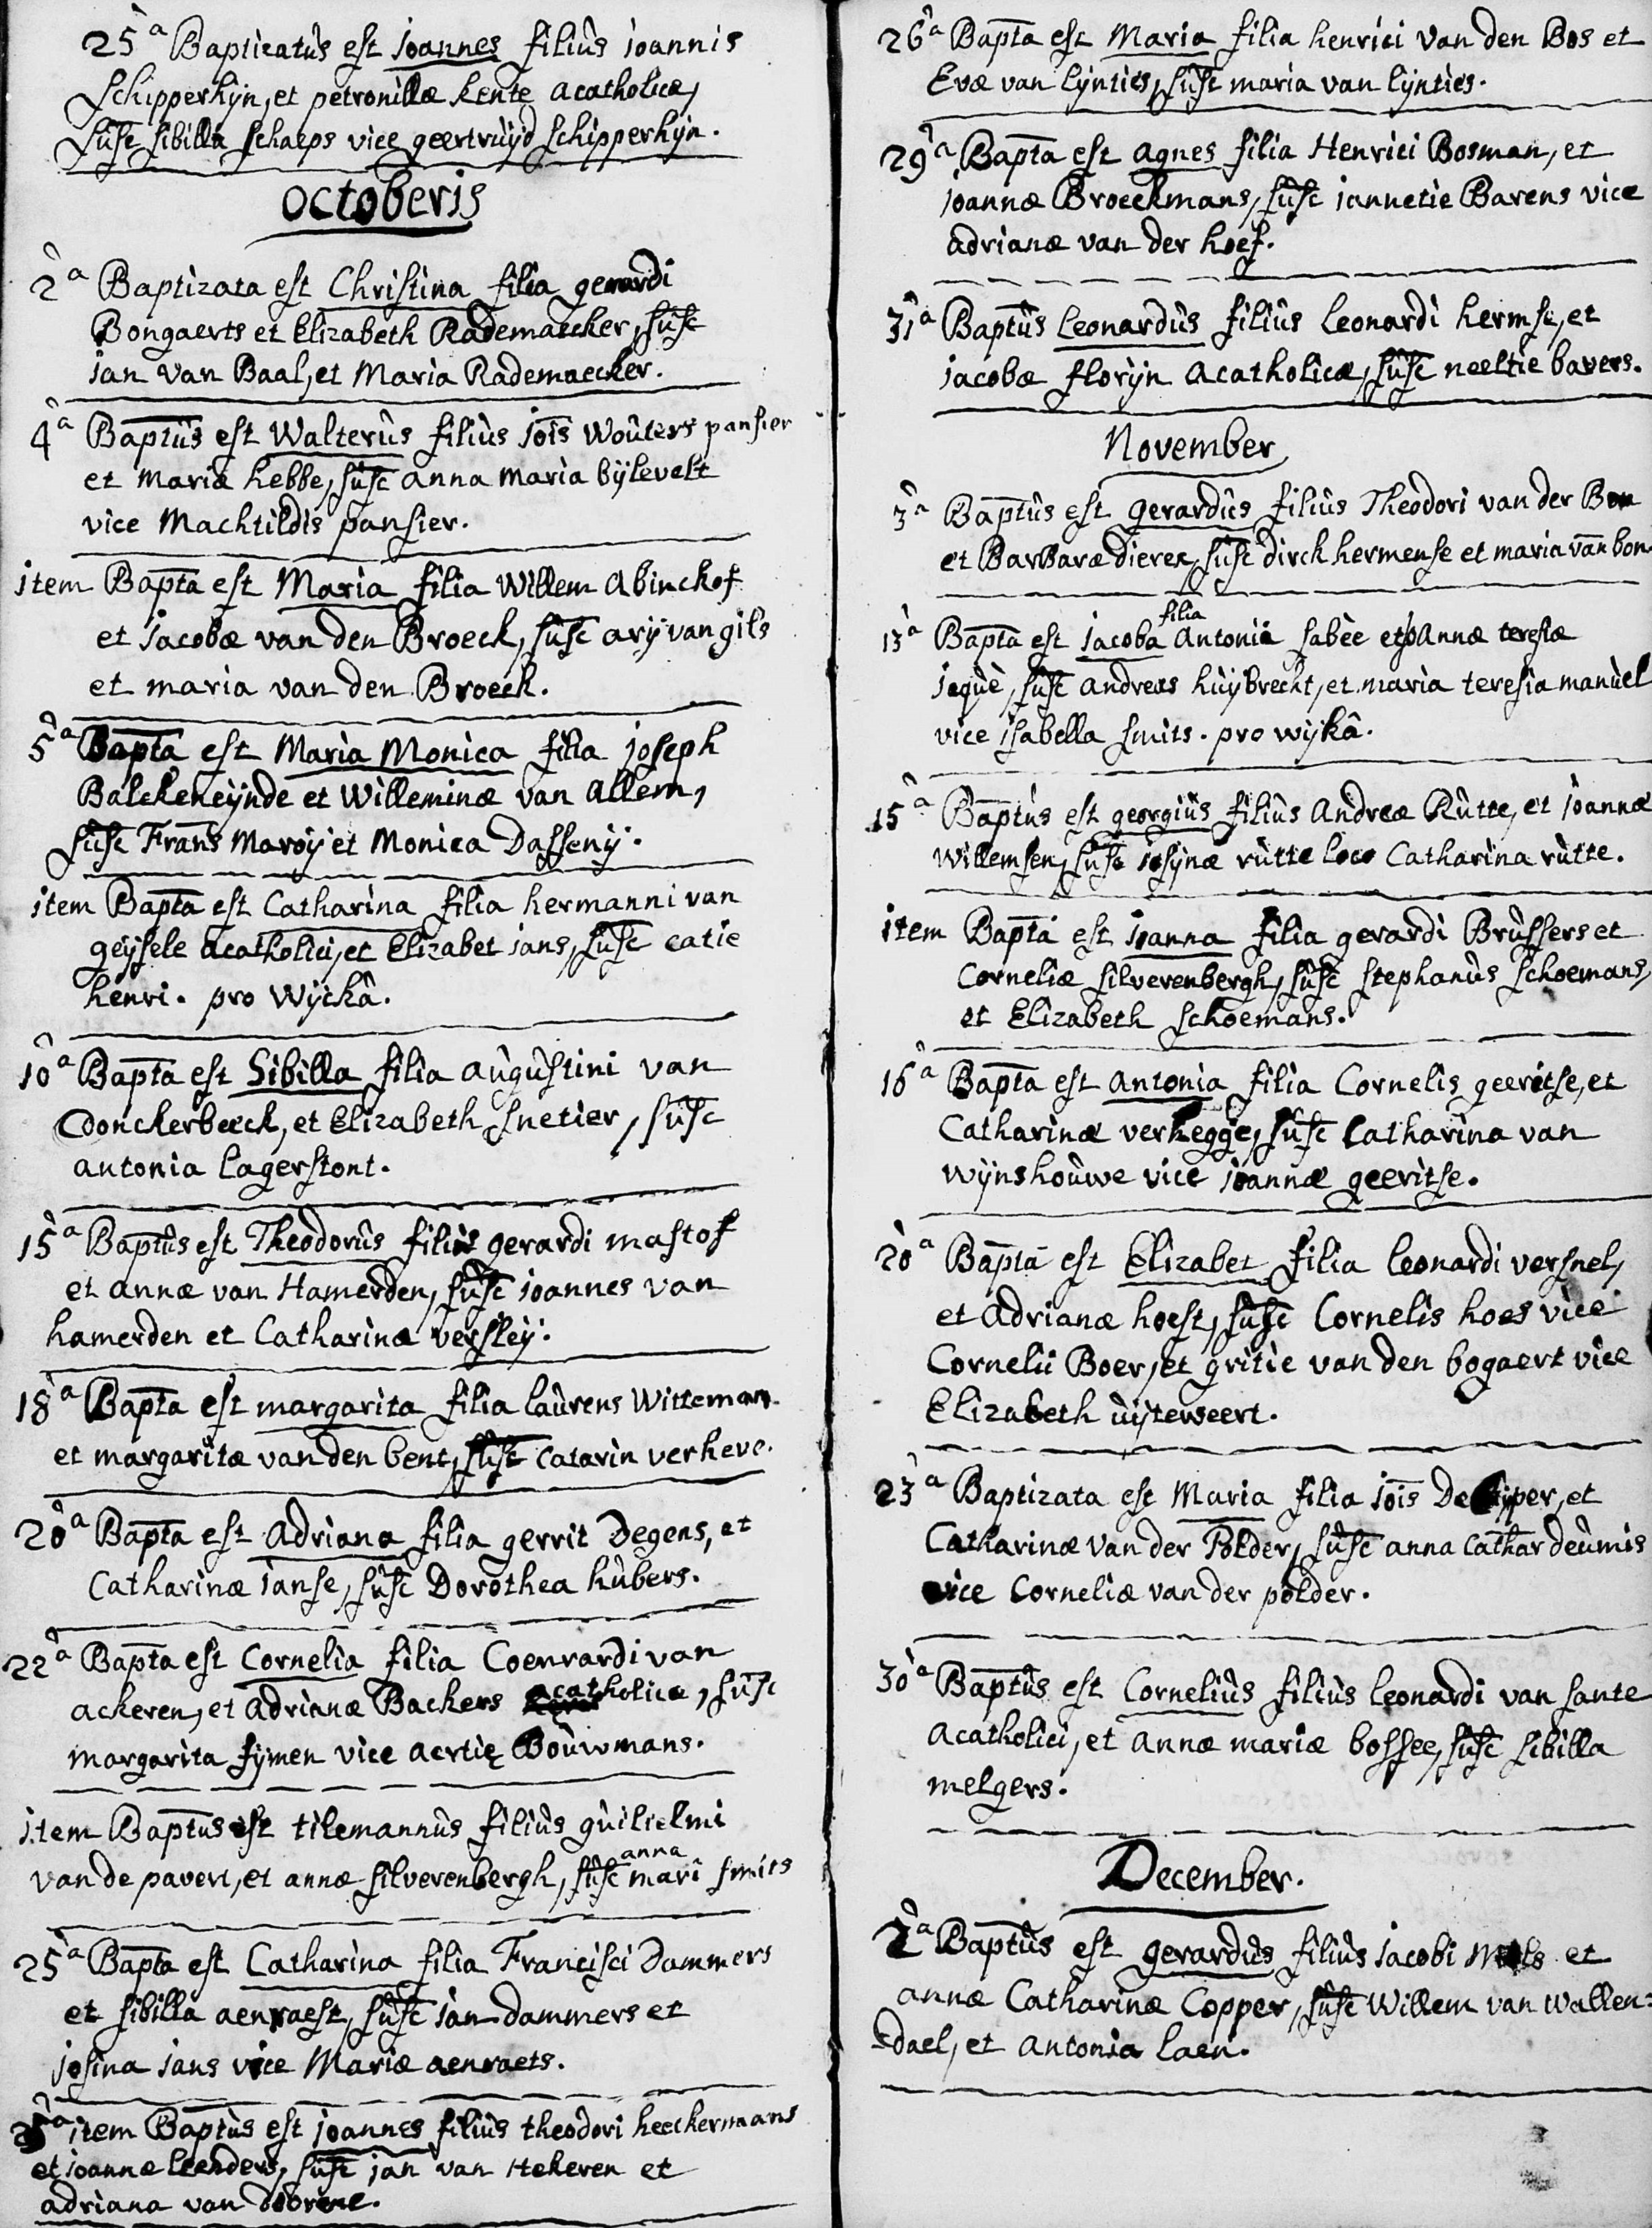 25ª Baptizatus est joannes filiûs joannis
Schipperhijn, et petronillæ kente acatholicæ,
sûsc sibilla schaeps vice geertruijd schipperhijn.
octoberis
2ª Baptizata est Christina filia gerardi
Bongaerts et Elizabeth Rademaecker, sûsc
jan van Baal, et Maria Rademaecker.
4ª Baptûs est Walterûs filiûs jois Woûters pansier
et mariæ hebbe, sûsc anna maria bijlevelt
vice Machtildis pansier.
item Bapta est Maria filia Willem Abinckhof
et jacobæ van den Broeck, sûsc arij van gils
et maria van den Broeck.
5ª Bapta est Maria Monica filia joseph
Balckeneijnde et Willeminæ van Allem,
sûsc Frans Maroij et Monica Dassenij.
item Bapta est Catharina filia hermanni van
geijsele acatholici, et Elizabet jans, sûsc catie
henri. pro Wijckâ.
10ª Bapta est Sibilla filia aûgûstini van
Donckerbeeck, et Elizabeth snetier, sûsc
antonia lagerstont.
15ª Baptûs est Theodorûs filiûs gerardi mastof
et annæ van Hamerden, sûsc joannes van
hamerden et Catharina versleij.
18ª Bapta est margarita filia laûrens Witteman
et margaritæ van den bent, sûsc catarin verheve.
20ª Bapta est Adriana filia gerrit Degens, et
Catharinæ janse, sûsc Dorothea hûbers.
22ª Bapta est Cornelia filia Coenrardi van
ackeren, et Adrianæ Backers acatholicæ, sûsc
margarita sijmen vice aertie Boûwmans.
item Baptus est tilemannûs filiûs gûilielmi
van de pavert, et annæ silverenbergh, sûsc anna mari smits
25ª Bapta est Catharina filia Francisci Dammers
et sibilla aenraest, sûsc jan dammers et
josina jans vice Mariæ aenraets.
25ª item Baptûs est joannes filiûs theodori heeckermaans
et joannæ leenders, sûsc jan van Hekeren et
adriana van doorene.
26ª Bapta est Maria filia henrici van den Bos et
Evæ van lijnties, sûsc maria van lijnties.
29ª Bapta est agnes filia Henrici Bosman, et
joannæ Broeckmans, sûsc jannetie Barens vice
adrianæ van der hoef.
31ª Baptûs leonardûs filiûs leonardi hermse, et
jacobæ florijn acatholicæ, sûsc neeltie bavers.
November
3ª Baptûs est gerardûs filiûs Theodori van der Bon
et Barbaræ dieren, sûsc dirck hermense et maria van bon.
13ª Bapta est jacoba filia Antonii sabèe et joannæ teresiæ
jequè, sûsc andreas hûijbrecht, et maria teresia manûel
vice jsabella smits. pro wijkâ.
15ª Baptûs est georgiûs filiûs Andreæ Rûtte, et joannæ
Willemsen, sûsc josijnæ rûtte loco Catharina rûtte.
item Bapta est joanna filia gerardi Brûssers et
Corneliæ silverenbergh, sûsc stephanûs schoemans,
et Elizabeth schoemans.
16ª Bapta est antonia filia Cornelis geeritse, et
Catharinæ verhegge, sûsc Catharina van
wijnshoûwe vice joannæ geeritse.
20ª Bapta est Elizabet filia leonardi versnel,
et Adrianæ hoest, sûsc Cornelis hoes vice
Cornelii Boer, et gritie van den bogaert vice
Elizabeth ûijterweert.
23ª Baptizata est Maria filia jois De et
Catharinæ van der Polder, sûsc anna cathar deûmis
vice Corneliæ van der polder.
30ª Baptûs est Corneliûs filiûs leonardi van sante
acatholici, et annæ mariæ bossee, sûsc sibilla
melgers.
December.
2ª Baptûs est gerardûs filiûs jacobi et
annæ Catharinæ Copper, sûsc Willem van Wallen=
=dael, et antonia laen.